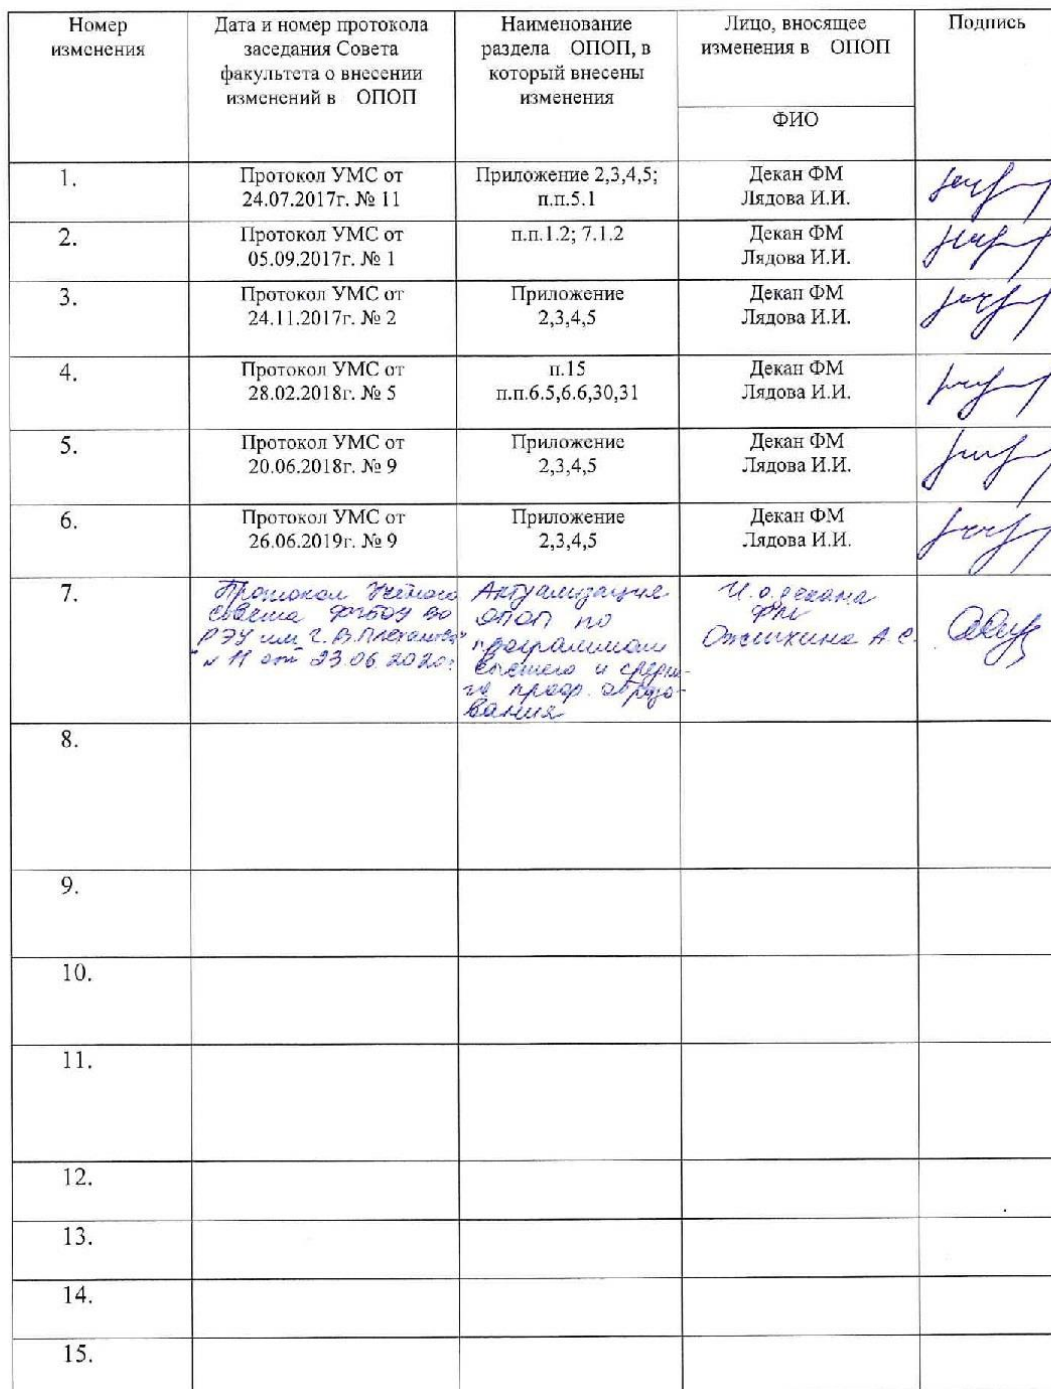 Номер
изменения
Дата и номер протокола
заседания Совета
факультета о внесении
изменений в ОПОП
Наименование
раздела ОПОП, в
который внесены
изменения
Лицо, вносящее
изменения в ОПОП
ФИО
Подпись
1.
Протокол УМС от
24.07.2017г. № 11
Приложение 2,3,4,5;
п.п.5.1
Декан ФМ
Лядова И.И.
2.
Протокол УМС от
05.09.2017г. № 1
п.п.1.2; 7.1.2
Декан ФМ
Лядова И.И.
3.
Протокол УМС от
24.11.2017г. № 2
Приложение
2,3,4,5
Декан ФМ
Лядова И.И.
4.
Протокол УМС от
28.02.2018г. № 5
п.15
п.п.6.5,6.6,30,31
Декан ФМ
Лядова И.И.
5.
Протокол УМС от
20.06.2018г. № 9
Приложение
2,3,4,5
Декан ФМ
Лядова И.И.
6.
Протокол УМС от
26.06.2019г. № 9
Приложение
2,3,4,5
Декан ФМ
Лядова И.И.
7.
Протокол Учёного
совета ФГБОУ ВО
РЭУ им. Г.В.Плеханова"
№ 11 от 23.06.2020г.
Актуализация
ОПОП по
программам
высшего и средне-
го проф. образо-
вания
И.о.декана
ФМ
А.С.
8.
9.
10.
11.
12.
13.
14.
15.